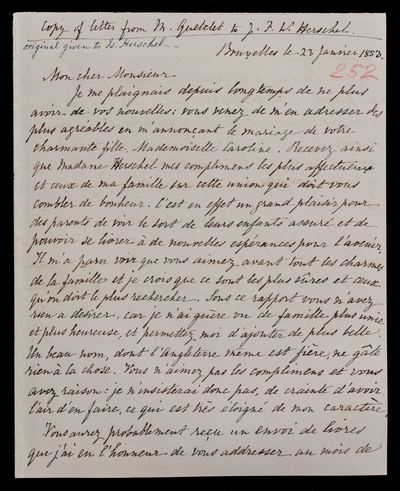 Copy of letter from M. Quetelet to J. F. W. Herschel.
original given to Ld. Herschel
Bruxelles le 23 Janvier 1853.
252
Mon cher Monsieur
Je me plaignais depuis longtemps de ne plus
avoir de vos nouvelles: vous venez de m'en adresser des
plus agréables en m'annonçant le mariage de votre
charmante fille, Mademoiselle Caroline. Recevez ainsi
que Madame Herschel mes complimens les plus affectueux
et ceux de ma famille sur cette union qui doit vous
combler de bonheur. C'est en effet un grand plaisir pour
des parents de voir le sort de leurs enfants assuré et de
pouvoir se livrer à de nouvelles espérances pour l'avenir.
Il m'a paru voir que vous aimez avant tout les charmes
de la famille et je crois que ce sont les plus sûres et ceux
qu'on doit le plus rechercher. Sous ce rapport vous n'avez
rien a desirer, car je n'ai guère vu de famille plus unie
et plus heureuse, et permettez moi d'ajouter de plus belle.
Un beau nom, dont l'Angleterre même est fière, ne gâte
rien à la chose. Vous n'aimez pas les complimens et vous
avez raison: je n'insisterai donc pas, de crainte d'avoir
l'air d'en faire, ce qui est très eloigné de mon caractère.
Vous aurez probablement reçu un envoi de livres
que j'ai eu l'honneur de vous addresser au mois de